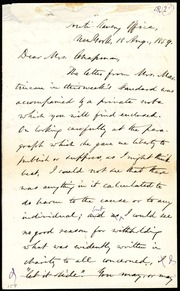 Anti-Slavery Office,
New York, 18 Aug., 1859.
Dear Mrs. Chapman,
The letter from Mrs. Mar-
tineau in this week's Standard was
accompanied by a private note
which you will find enclosed.
On looking carefully at the para-
graph which she gave me liberty to
publish or suppress as I might think
best, I could not see that there
was anything in it calculated to
do harm to the cause or to any
individual; and as I could see
no good reason for withholding
what was evidently written in
charity to all concerned, I
"let it slide." You may, or may